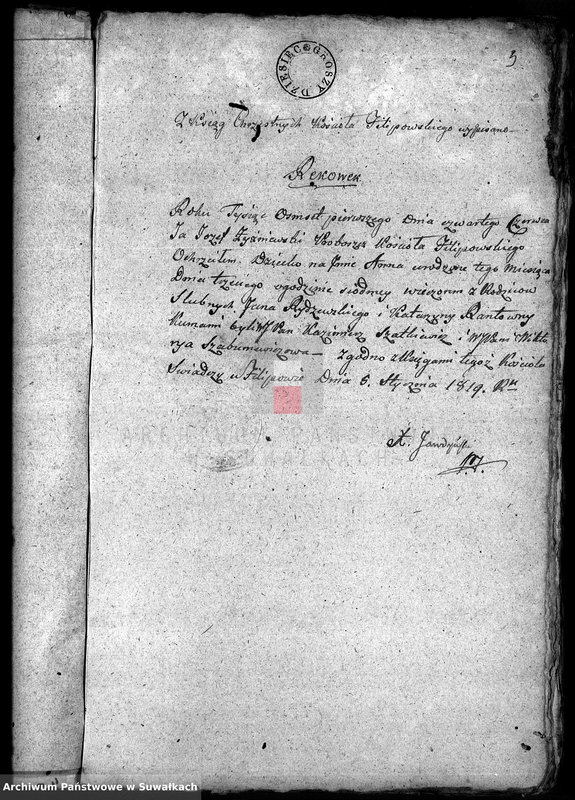 DZIESIĘC GROSZY
5
Z Ksiąg Chrzestnych Kościoła Filipowskiego wypisano
Rekowek
Roku Tysiąc Osmset pierwszego Dnia czwartego Czerwca
Ja Jozef Proboszcz Kościoła Filipowskiego
Ochrzciłem Dziecko na Imie Anna urodzone tego Miesiąca
Dnia trzeciego ogodzinie siodmey wieczorem z Rodzicow
Slubnych Jana Rydzewskiego i Katarzyny
Kumami byli W Pan Kazimierz i W Pani Wikto
rya zgodno z Xięgami tegoż Kościoła
Swiadczę w Filipowie Dnia 5. Stycznia 1819. Ru
X.
ARCHIWUM PAŃSTWOWE
W SUWAŁKACH
Archiwum Państwowe w Suwałkach